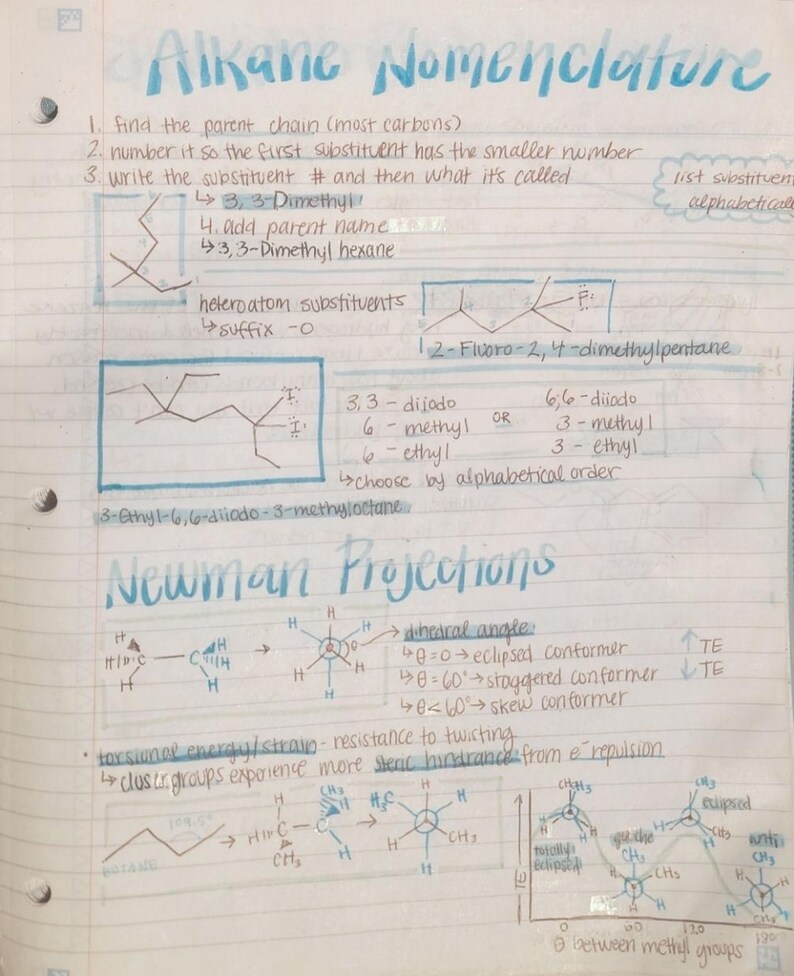 Alkane Nomenclature
1. find the parent chain (most carbons)
2. number it so the first substituent has the smaller number
3. write the substituent # and then what it's called
list substituen
alphabetical
↳ 3, 3-Dimethyl
4. add parent name
↳ 3,3-Dimethyl hexane
heteroatom substituents
↳ suffix -o
F
2-Fluoro-2,4-dimethylpentane
I
I
3,3-diiodo
6-methyl
6-ethyl
OR
6,6-diiodo
3-methyl
3-ethyl
↳ choose by alphabetical order
3-Ethyl-6,6-diiodo-3-methyloctane
Newman Projections
H
H H
H C — C H
H H
H
H
H
H
H
H
H
θ
dihedral angle
↳ θ=0 → eclipsed conformer ↑ TE
↳ θ=60° → staggered conformer ↓ TE
↳ θ<60° → skew conformer
• torsional energy/strain - resistance to twisting
↳ closer groups experience more steric hindrance from e⁻ repulsion
109.5°
butane
H
H C
CH₃
CH₃
H
C
H
H₃C
H
H
H
CH₃
H
TE
CH₃
H
H
totally
eclipsed
gauche
CH₃
CH₃
H
H
H
CH₃
eclipsed
CH₃
H
H
anti
CH₃
H
H
H
CH₃
0 60 120 180
θ between methyl groups